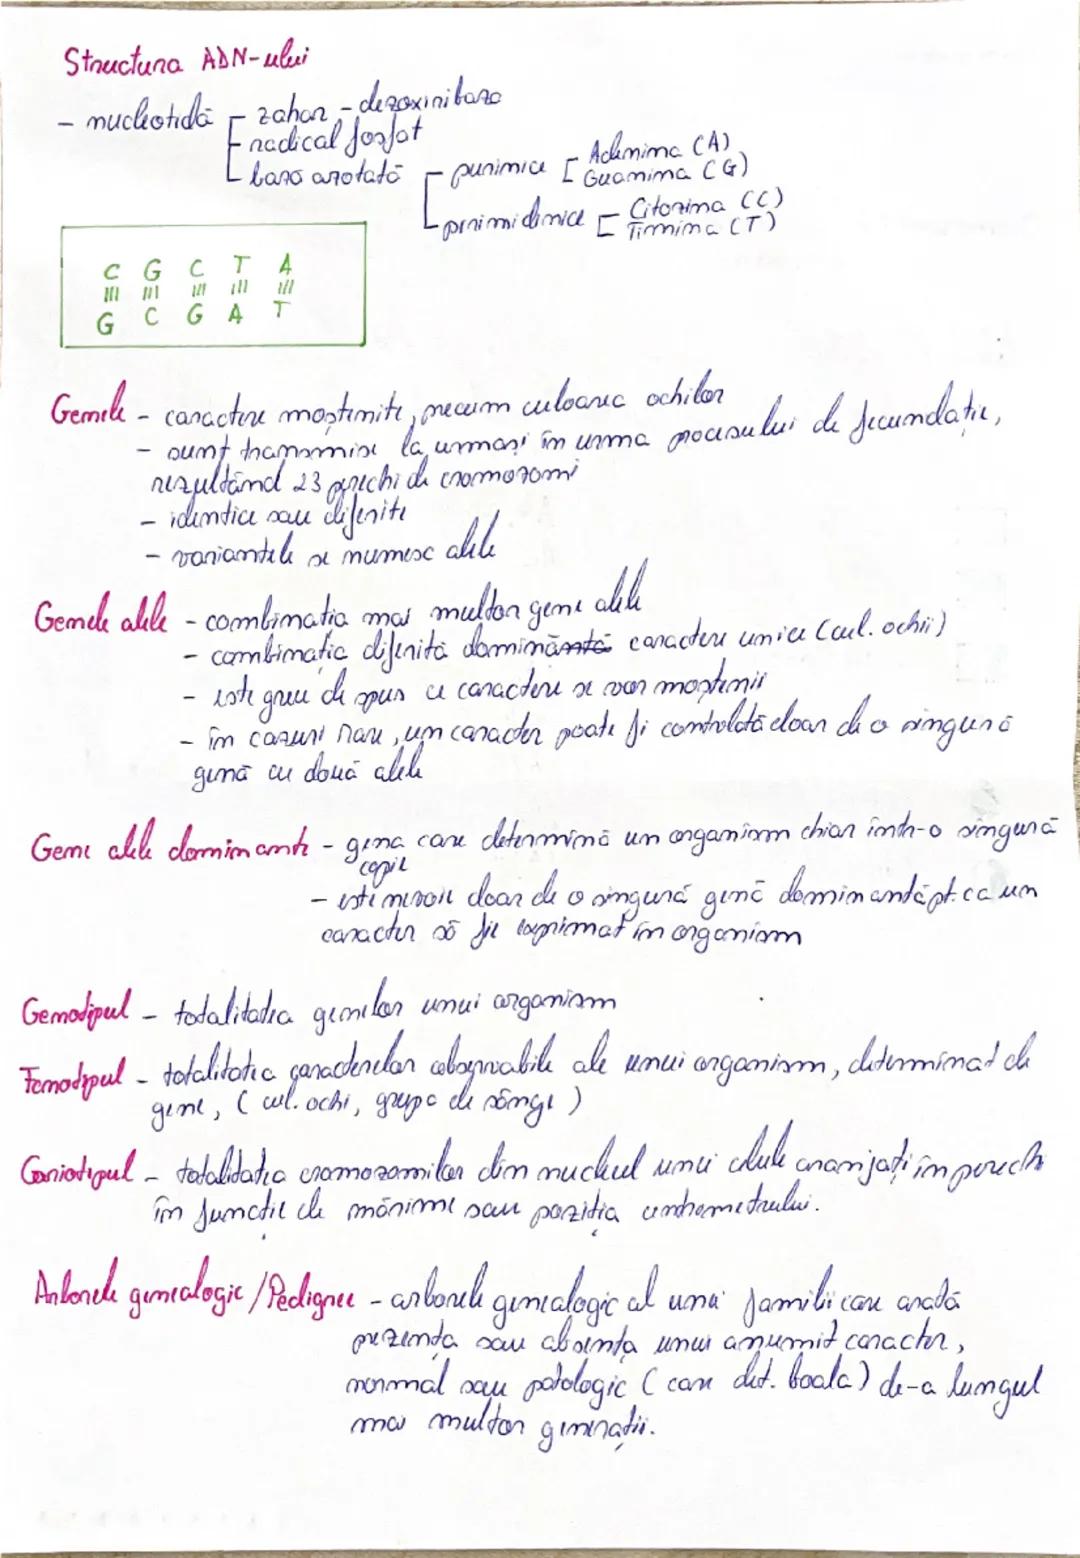 Structura ADN-ului
- nucleotidă - zahar - dezoxiriboza
- radical fosfat
- bază azotată - purinice [ Adenina (A)
Guanina (G)
- pirimidinice [ Citozina (C)
Timina (T)
C G C T A
||| ||| ||| ||| |||
G C G A T
Genele - caractere moștenite, precum culoarea ochilor
- sunt transmise la urmași în urma procesului de fecundație,
rezultând 23 perechi de cromozomi
- identice sau diferite
- variantele se numesc alele
Genele alele - combinația mai multor gene alele
- combinația diferită caractere unice (cul. ochii)
- este greu de spus ce caractere se vor moșteni
- în cazuri rare, un caracter poate fi controlată doar de o singură
genă cu două alele
Gene alele dominante - gena care determină un organism chiar într-o singură
copie
- este nevoie doar de o singură genă dominantă pt. ca un
caracter să fie exprimat în organism
Genotipul - totalitatea genelor unui organism
Fenotipul - totalitatea caracterelor observabile ale unui organism, determinat de
gene, (cul. ochi, grupa de sânge)
Cariotipul - totalitatea cromozomilor din nucleul unei celule aranjați în perechi
în funcție de mărime sau poziția centrometrului.
Arborele genealogic/Pedigree - arborele genealogic al unei familii care arată
prezența sau absența unui anumit caracter,
normal sau patologic (care det. boala) de-a lungul
mai multor generații.